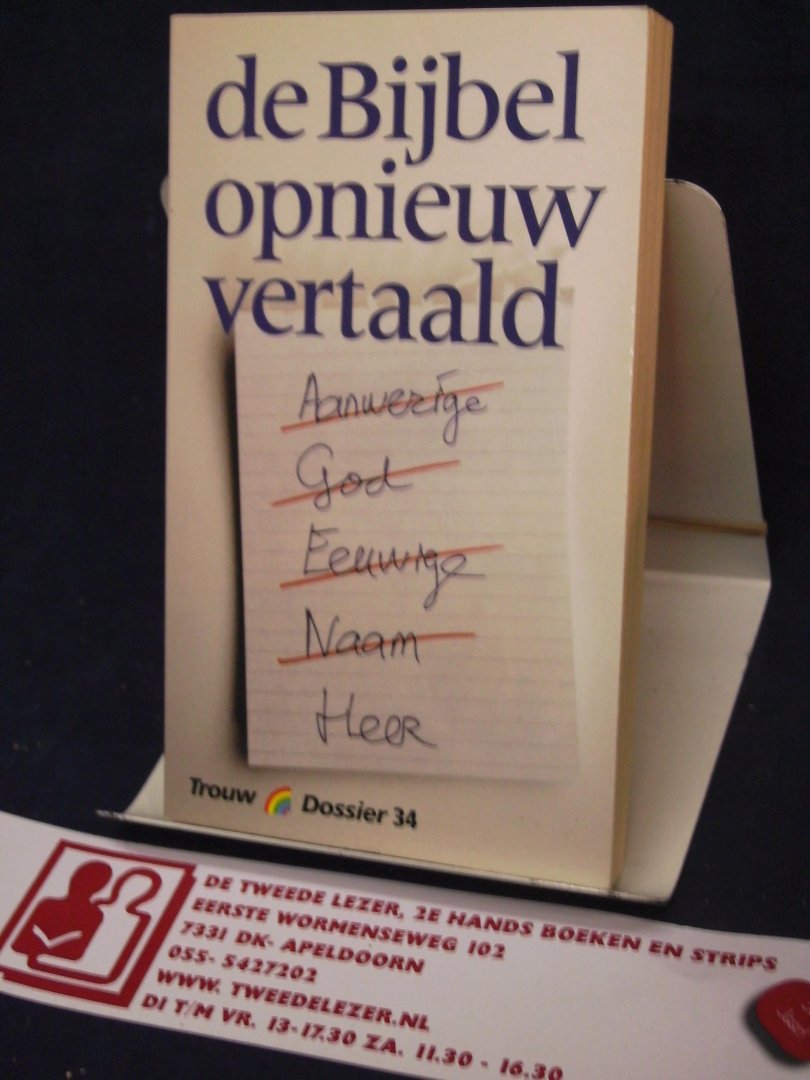 de Bijbel
opnieuw
vertaald
Aanwezige
God
Eeuwige
Naam
Heer
Trouw Dossier 34
DE TWEEDE LEZER, 2E HANDS BOEKEN EN STRIPS
EERSTE WORMENSEWEG 102
7331 DK- APELDOORN
055- 5427202
WWW. TWEEDELEZER.NL
DI T/M VR. 13-17.30 ZA. 11.30 - 16.30